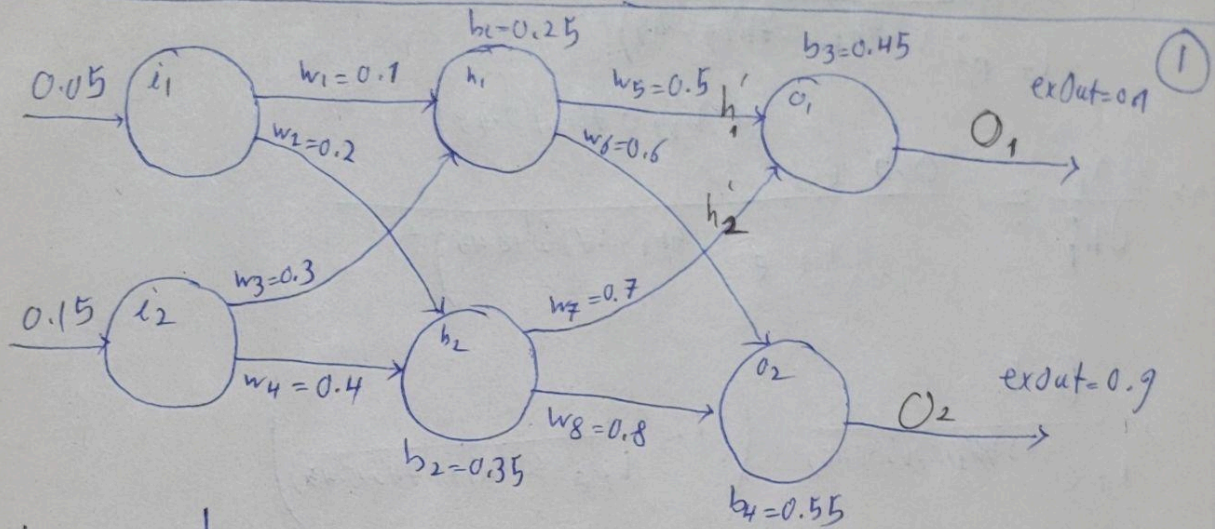 b1=0.25
b3=0.45
1
0.05
i1
w1=0.1
h1
w5=0.5
h1'
o1
exOut=0.1
O1
w2=0.2
w6=0.6
h2'
w3=0.3
w7=0.7
0.15
i2
h2
w4=0.4
w8=0.8
o2
exout=0.9
O2
b2=0.35
b4=0.55